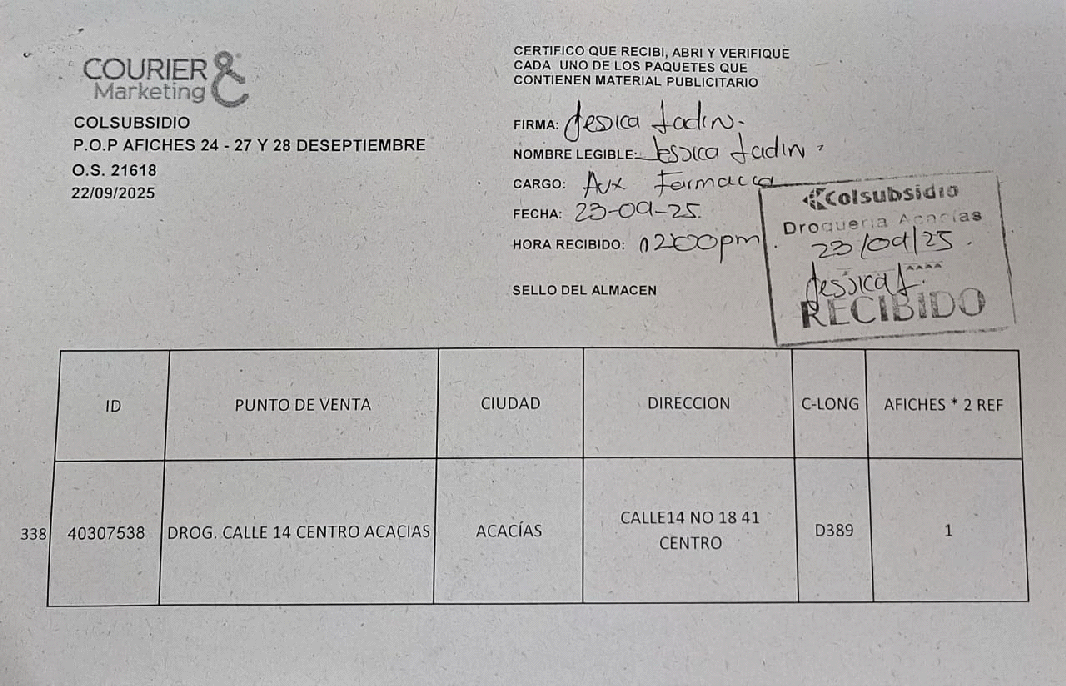 COURIER &
Marketing
COLSUBSIDIO
P.O.P AFICHES 24 - 27 Y 28 DESEPTIEMBRE
O.S. 21618
22/09/2025
CERTIFICO QUE RECIBI, ABRI Y VERIFIQUE
CADA UNO DE LOS PAQUETES QUE
CONTIENEN MATERIAL PUBLICITARIO
FIRMA: Jessica
NOMBRE LEGIBLE: Jessica
CARGO: Aux Farmacia
FECHA: 23-09-25.
HORA RECIBIDO: 12:00pm.
SELLO DEL ALMACEN
Colsubsidio
Droguería Acacías
23/09/25.
Jessica J.
RECIBIDO
ID PUNTO DE VENTA CIUDAD DIRECCION C-LONG AFICHES * 2 REF
338 40307538 DROG. CALLE 14 CENTRO ACACIAS ACACÍAS CALLE14 NO 18 41 CENTRO D389 1